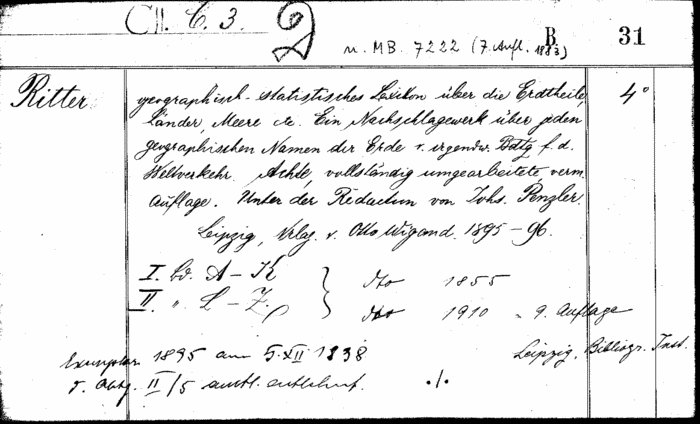 Cll. C. 3.
u. MB. 7222 (7. Aufl. 1883)
B 31
Ritter geographisch-statistisches Lexikon über die Erdtheile, 4°
Länder, Meere etc. Ein Nachschlagewerk über jeden
geographischen Namen der Erde v. irgendw. Bdtg f. d.
Weltverkehr. Achte, vollständig umgearbeitete, verm.
Auflage. Unter der Redaction von Johs. Penzler.
Leipzig, Verlag v. Otto Wigand. 1895-96.
I. Bd. A-K } dto 1855
II " L-Z. } dto 1910 = 9. Auflage
Leipzig, Bibliogr. Inst.
Exemplar 1895 am 5.XII 1938
v. Abtg. II/5 amtl.
./.